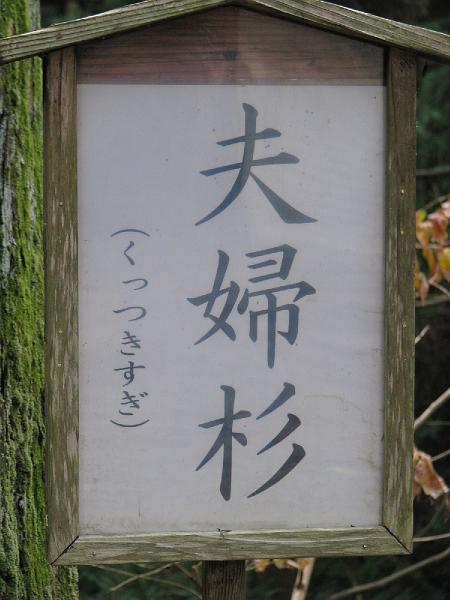 夫婦杉
(くっつきすぎ)